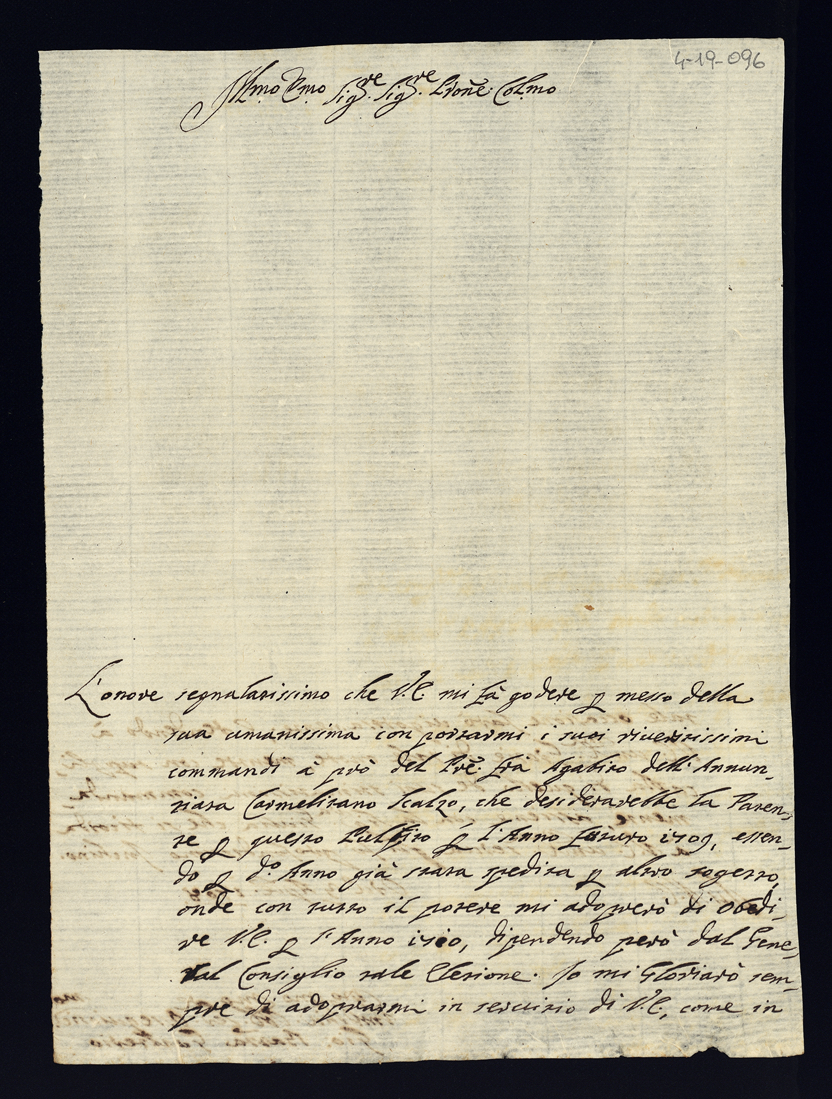 4-19-096
Ill.mo Sig.re Sig.re Prone Col.mo
L'onore segnalatissimo che V.E. mi fà godere p mezzo della
sua umanissima con portarmi i suoi riveritissimi
commandi à prò del Pre. frà Agabito dell'Annun,
ziata Carmelitano Scalzo, che desiderarebbe la Paten,
te p questo Pulpito p l'Anno futuro 1709, essen,
do p do Anno già stata spedita p altro sogetto,
onde con tutto il potere mi adoprerò di obedi,
re V.E. p l'Anno 1710, dipendendo però dal Gene,
ral Consiglio tale Elezione. Io mi gloriarò sem,
pre di adoprarmi in servizio di V.E, come in